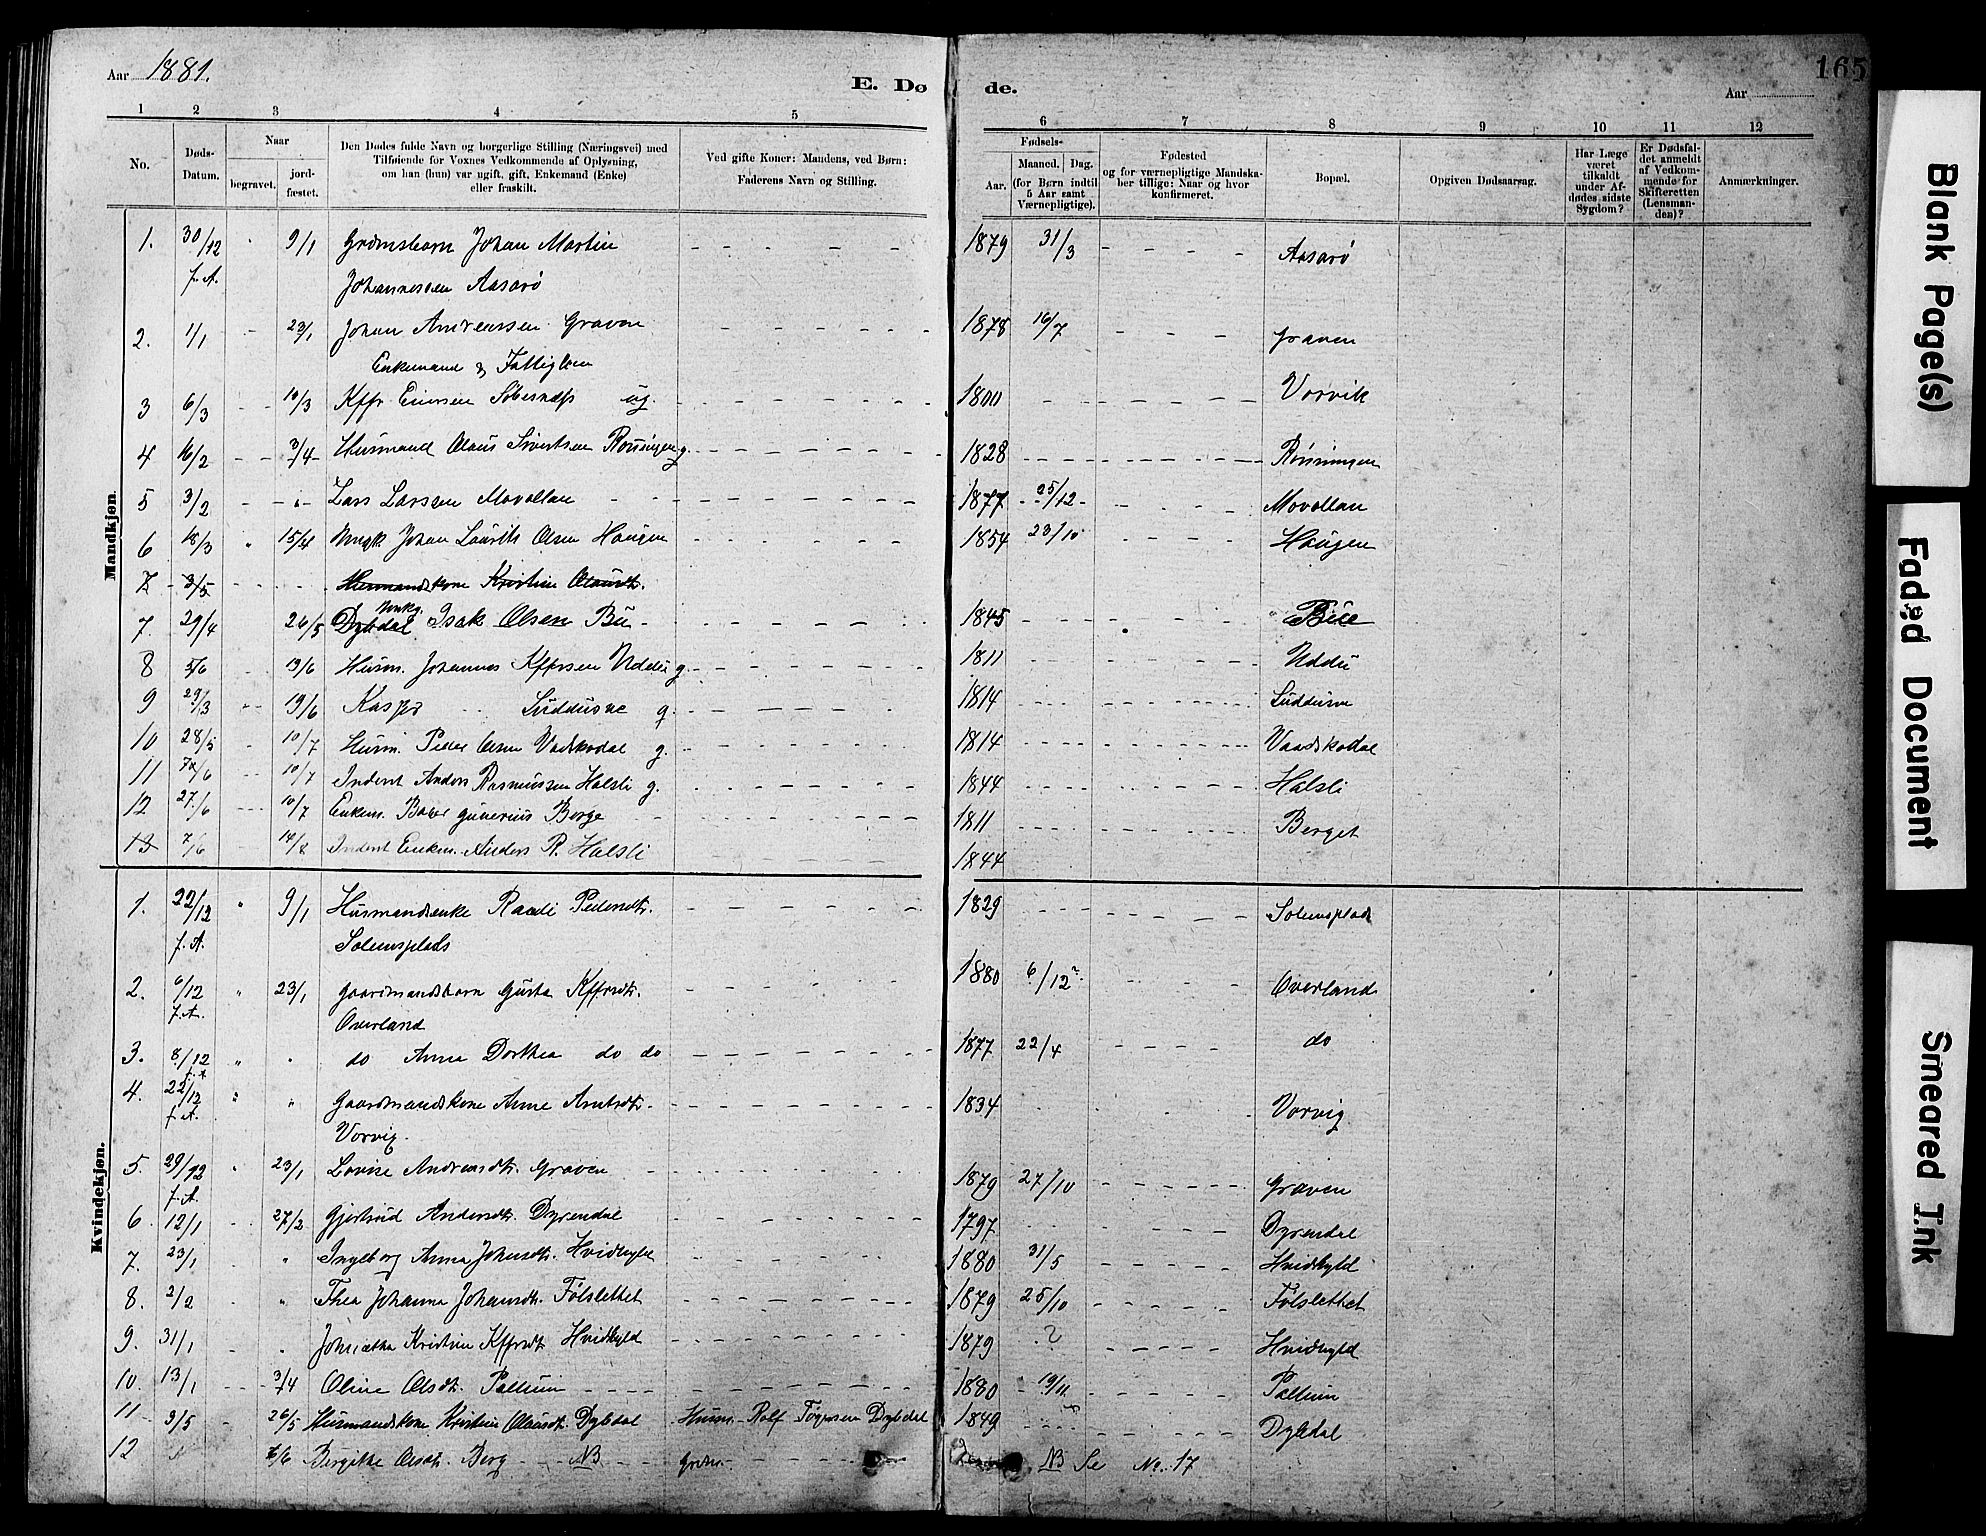 Aar 1881.
E. Dø
de.
Aar
165
1 2 3 4 5
6 7 8 9 10 11 12
No.
Døds-Datum.
Naar
begravet.
jord-fæstet.
Den Dødes fulde Navn og borgerlige Stilling (Næringsvei) med
Tilføiende for Voxnes Vedkommende af Oplysning,
om han (hun) var ugift, gift, Enkemand (Enke)
eller fraskilt.
Ved gifte Koner: Mandens, ved Børn:
Faderens Navn og Stilling.
Fødsels-
Aar.
Maaned. Dag.
(for Børn indtil
5 Aar samt
Værnepligtige).
Fødested
og for værnepligtige Mandska-
ber tillige: Naar og hvor
konfirmeret.
Bopæl.
Opgiven Dødsaarsag.
Har Læge
været
tilkaldt
under Af-
dødes sidste
Sygdom?
Er Dødsfal-
det anmeldt
af Vedkom-
mende for
Skifteretten
(Lensman-
den)?
Anmærkninger.
Mandkjøn.
1. 30/12 f. A. 9/1 Johan Martin 1879 31/3 Aasarø
Johannessen Aasarø
2. 1/1 23/1 Johan Andreassen Graven 1878 16/7 Graven
Enkemand & Fattiglem
3 6/3 10/3 Kffr Einersen ug. 1800 Vorvik
4 16/2 3/4 Husmand Olaus Sivertsen Rønningen g. 1828 Rønningen
5 3/2 " Lars Larssen Movollan 1877 25/12 Movollan
6 18/3 " 15/4 Ungk. Johan Laurits Olsen Haugen 1854 23/10 Haugen
7 3/5 Husmandskone Kristine Olausdt.
7. 29/4 26/5 Dybdal Ungk. Isak Olsen Bu 1845 Bue
8 5/6 19/6 Husm. Johannes Kffrsen Uddu g. 1811 Uddu
9 29/3 19/6 Kasper Suddusne g. 1814
10 28/5 10/7 Husm. Peder Olsen Vadskodal g. 1814 Vaadskodal
11 7/6 10/7 Inderst Anders Rasmussen Halsli g. 1844 Halsli
12 27/6 10/7 Enkem. Gunerius Berge 1811 Berget
13 7/6 14/8 Inderst Enkem. Anders R. Halsli 1844
Kvindekjøn.
1. 22/12 f. A. " 9/1 Husmandsenke Pedersdt. 1829 Solemsplads
Solemsplads
2. 6/12 f. A. " 23/1 Gaardmandsbarn Gusta Kffrsdt. 1880 6/12? Overland
Overland
3. 8/12 f. A " " do Anna Dorthea do do 1877 22/4 do
4. 22/12 f. A. " " Gaardmandskone Anne Arntsdt. 1834 Vorvig
Vorvig.
5. 29/12 f. A. " 23/1 Lovise Andreasdt. Graven 1879 27/10 Graven
6. 12/1 27/2 Gjertrud Andersdt. Dyrendal 1797 Dyrendal
7. 23/1 " Ingeborg Anna Johnsdt. Hvidbyld 1880 31/5 Hvidbyld
8. 2/2 " Thea Johanna Johansdt. Følslettet 1879 25/10 Følslettet
9. 31/1 " Kristine Kffrsdt. Hvidbyld 1879 ? Hvidbyld
10. 13/1 3/4 Oline Olsdt. Pallum 1880 19/11 Pallum
11. 3/5 26/5 Husmandskone Kristine Olausdt. Dybdal Husm. Rolf Tøgersen Dybdal 1849 Dybdal
12 6/6 Bergitte Olsdt. Berg NB NB Se No. 17
Blank Page(s)
Faded Document
Smeared Ink